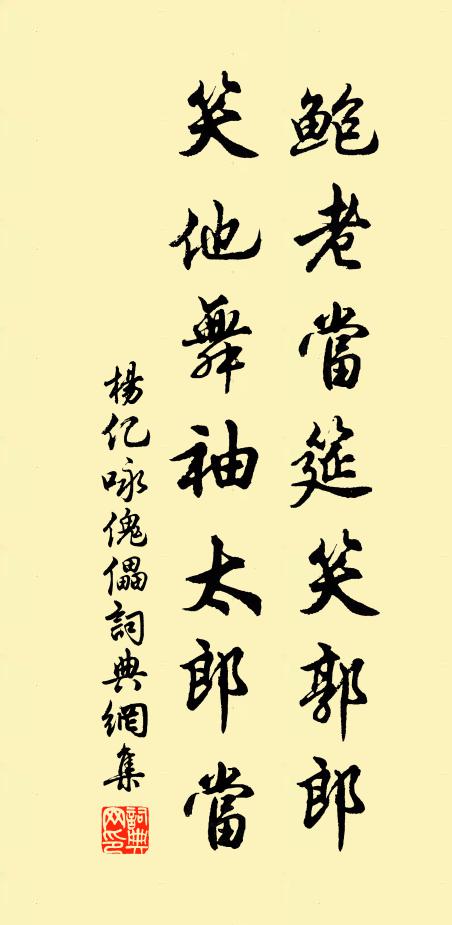 鲍老當筵笑郭郎
笑他舞袖太郎當
楊亿咏傀儡詞典網集
詞典网印